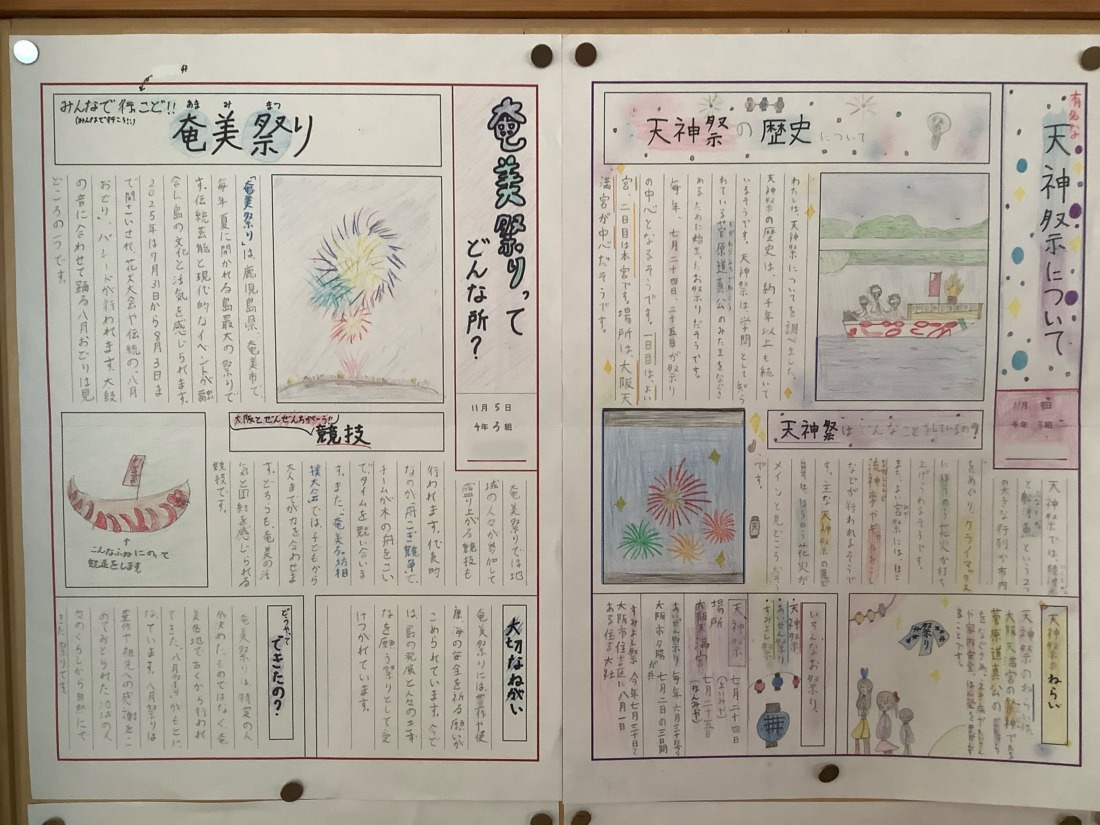 奄美祭りって
どんな所？
11月5日
4年3組
みんなで行こど!!
(みんなで行こう!!)
あま み まつ
奄美祭り
「奄美祭り」は、鹿児島県、奄美市で
毎年夏に開かれる島最大の祭りで
す。伝統芸能と現代的なイベントが融
合し島の文化と活気を感じられます。
2025年は7月31日から8月3日ま
で開さいされ、花火大会や伝統の、八月
おどり、パレードが行われます。大鼓
の音に合わせて踊る八月おどりは見
どころの一つです。
大阪とぜんぜんちがーう!!
競技
奄美祭りでは地
域の人々が参加して
盛り上がる競技も
行われます。代表的
なのが、舟こぎ競争で、
チームが木の舟をこい
でタイムを競い合いま
す。また、奄美る。相
撲大会では、子どもから
大人までが力を合わせま
す。どちらも、奄美の活
気と団結を感じられる
競技です。
こんなふねにのって
競走をします
大切なねがい
奄美祭りには、豊作や健
康、海の安全を祈る願いが
こめられています。今で
は、島の発展と人々のきず
なを願う祭りとして受
けつがれています。
どうやって
できたの？
奄美祭りは、特定の人
が決めたものではなく、奄
美各地で古くから行われ
てきた、八月踊りがもとに
なっています。八月祭りは
豊作や祖先への感謝をこ
めておどられた地域の人
々のくらしから自然にで
きた祭りです。
有名な
天神祭について
11月 5日
4年 3組
天神祭の歴史について
わたしは、天神祭についてを調べました。
天神祭の歴史は、約千年以上も続いて
いるそうです。天神祭は、学問として知ら
れている菅原道真公のみたまをなぐさ
めるために始ったお祭りだそうです。
毎年、七月二十四日、二十五日が祭り
の中心となるそうです。一日目は、よい
宮、二日目は本宮です。場所は、大阪天
満宮が中心だそうです。
天神祭はどんなことをしているの？
天神祭では、陸渡御
と船渡御という二つ
の大きな行列が市内
をめぐり、クライマックス
にはほうのう花火が打ち
上げられるそうです。
また、よい宮祭には、ほこ
流神事やギャルみこし
などが行われるそうで
す。主な天神祭の見
見は、ほうのう花火が
メインと見どころだそう
です。
天神祭のねらい
天神祭のねらいは、
大阪天満宮の祭神である
菅原道真公の
いろんなお祭り、
天神祭
あいぜん祭り
すみよし祭り
天神祭
七月二十四日
(よいみや)
場所
七月二十五日
大阪天満宮
(ほんみや)
あいぜん祭り 毎年、六月三十日〜
七月二日の三日間
すみよし祭 今年七月三十日〜
八月一日
大阪市住吉区に
ある住吉大社
祭り